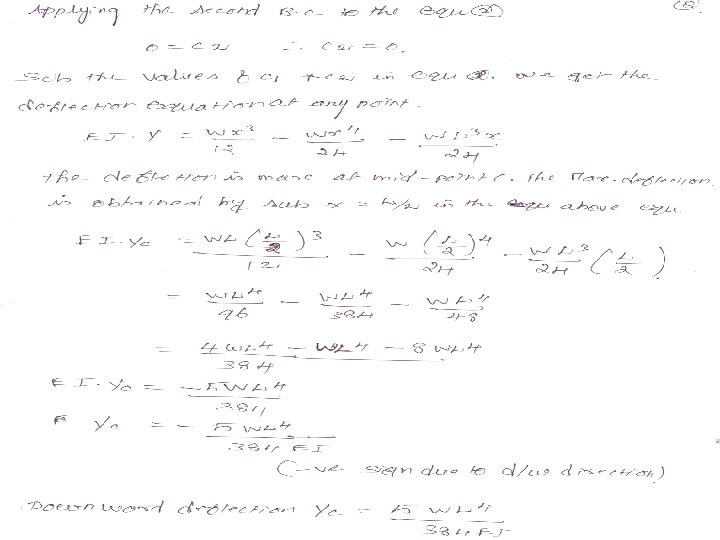 Applying the second B.C. to the equ (2)
0 = C2 ∴ C2 = 0.
Sub the values of C1 + C2 in equ 2. we get the
deflection equation at any point.
EI. y = wx³/12 − wx⁴/24 − wL³x/24
The deflection is max at mid-point C. The Max. deflection
is obtained by sub x = L/2 in the above equ
EI. yc = WL (L/2)³/12 − W (L/2)⁴/24 − WL³/24 (L/2)
= WL⁴/96 − WL⁴/384 − WL⁴/48
= 4WL⁴ − WL⁴ − 8WL⁴/384
EI. yc = −5WL⁴/384
yc = − 5WL⁴/384 EI
(−ve sign due to d/ws direction)
Downward deflection yc = 5 WL⁴/384 EI